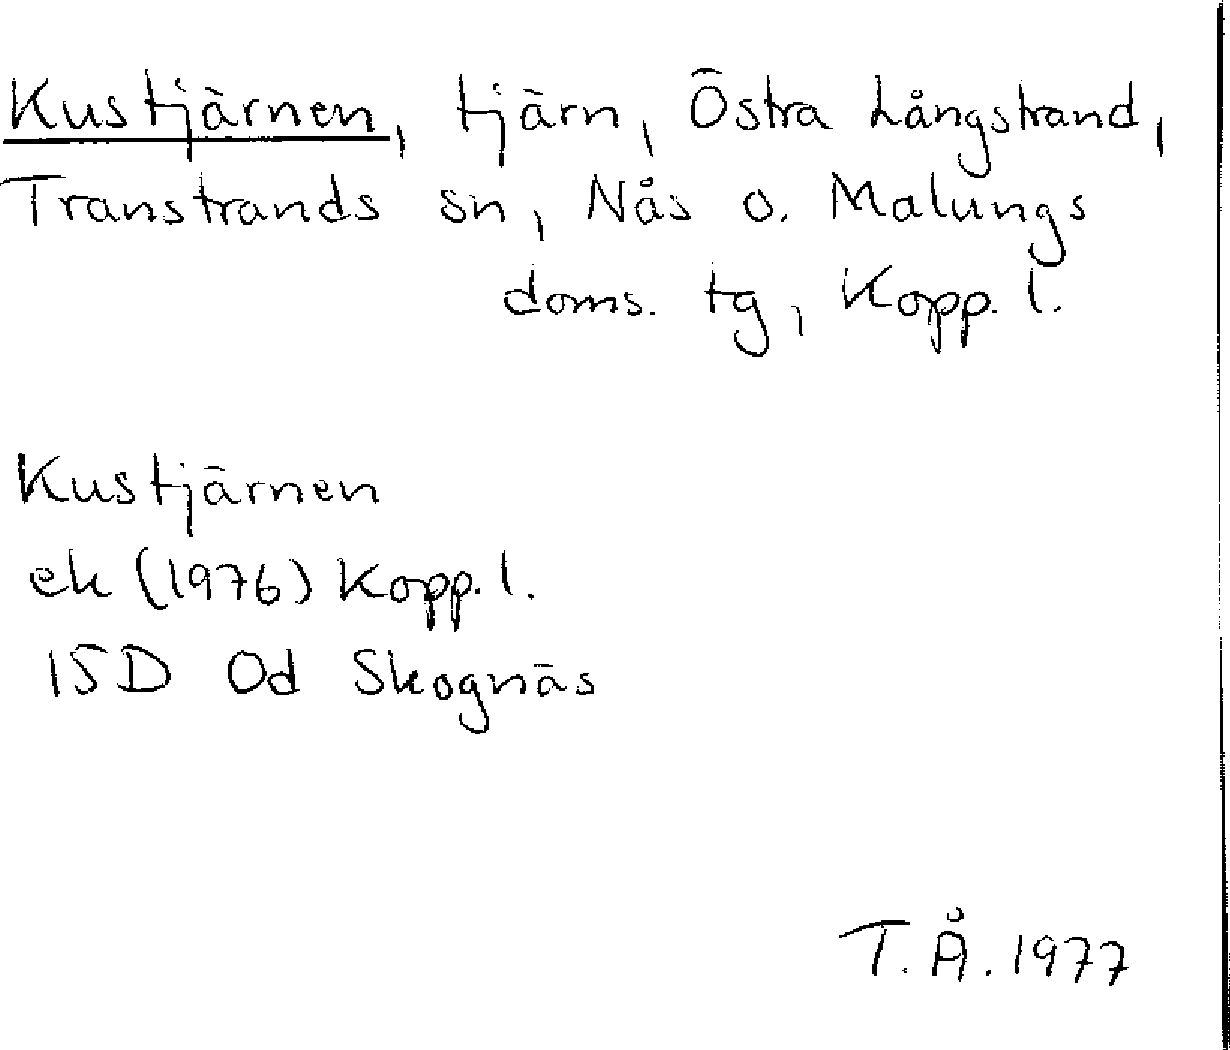 Kustjärnen, tjärn, Östra Långstrand,
Transtrands sn, Nås o. Malungs
doms. tg, Kopp. l.
Kustjärnen
ek (1976) Kopp. l.
15D Od Skognäs
T. Å. 1977